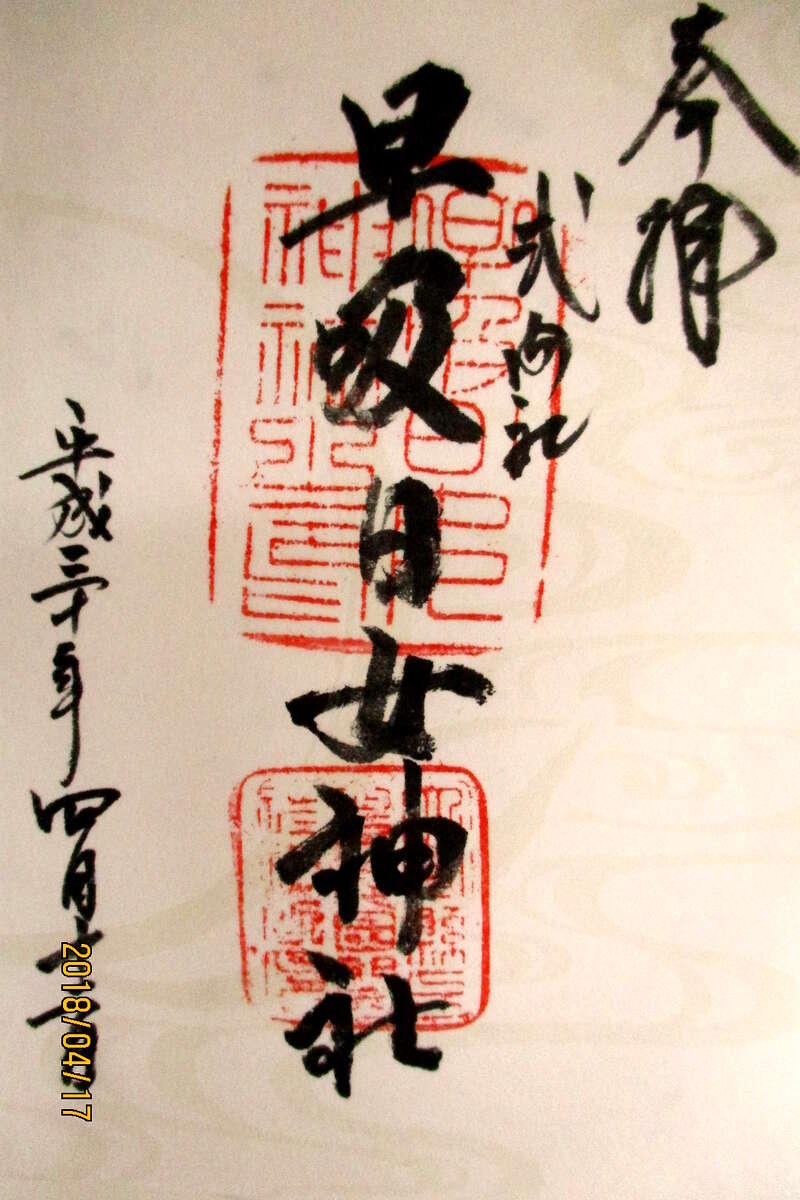 奉拝
式内社
早吸日女神社
平成三十年四月十
2018/04/17